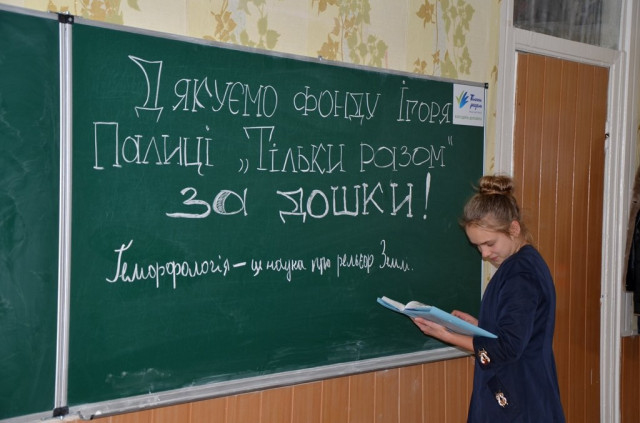 Дякуємо фонду Ігоря
Палиці „Тільки разом"
за дошки!
Тільки
разом
Геморфологія – це наука про рельєф Землі.